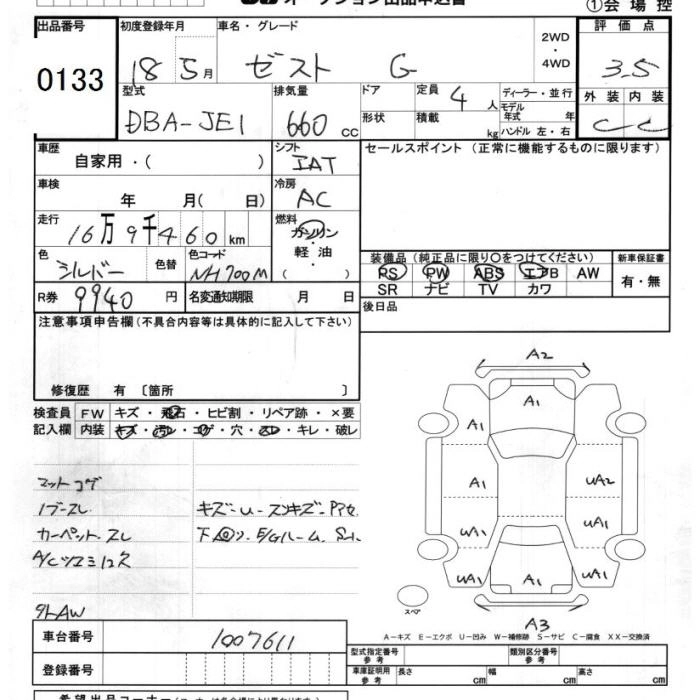 オークション出品申込書
①会場控
出品番号
0133
初度登録年月
18 5月
車名・グレード
ゼスト G
2WD・4WD
評価点
3.5
型式
DBA-JE1
排気量
660 cc
ドア
形状
定員 4 人
積載 kg
ディーラー・並行
モデル年式 年
ハンドル 左・右
外装 内装
C C
車歴
自家用・( )
シフト
IAT
セールスポイント (正常に機能するものに限ります)
車検
年 月( 日)
冷房
AC
走行
16万9千460 km
燃料
ガソリン
軽油
( )
色
シルバー
色替
色コード
NH700M
装備品 (純正品に限り○をつけてください)
新車保証書
PS PW ABS エアB AW
SR ナビ TV カワ
有・無
R券 9940 円
名変通知期限 月 日
後日品
注意事項申告欄 (不具合内容等は具体的に記入して下さい)
修復歴 有 〔箇所 〕
検査員記入欄
FW キズ・飛石・ヒビ割・リペア跡・×要
内装 キズ・汚レ・コゲ・穴・スレ・キレ・破レ
マットコゲ
カーペットスレ
A2
A1
A1
A1
UA2
UA1
UA1
UA1
A1
UA1
A3
スペア
A－キズ E－エクボ U－凹み W－補修跡 S－サビ C－腐食 XX－交換済
車台番号
1007611
登録番号
型式指定番号 参考
類別区分番号 参考
車庫証明用 参考
長さ cm
幅 cm
高さ cm